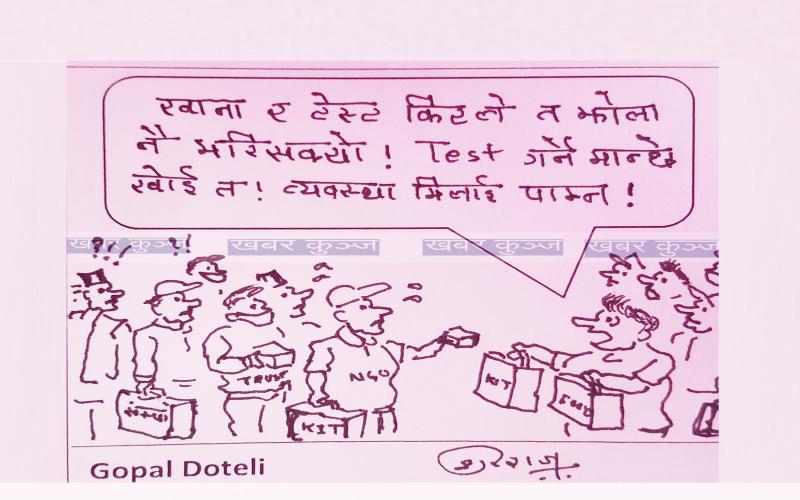 खाना र टेस्ट किटले त झोला
नै भरिसक्यो! Test गर्ने मान्छे
खोई त! व्यवस्था मिलाई पाम्न!
खबर कुञ्ज खबर कुञ्ज खबर कुञ्ज खबर कुञ्ज
TRUST
NGO
KIT
KIT
Gopal Doteli